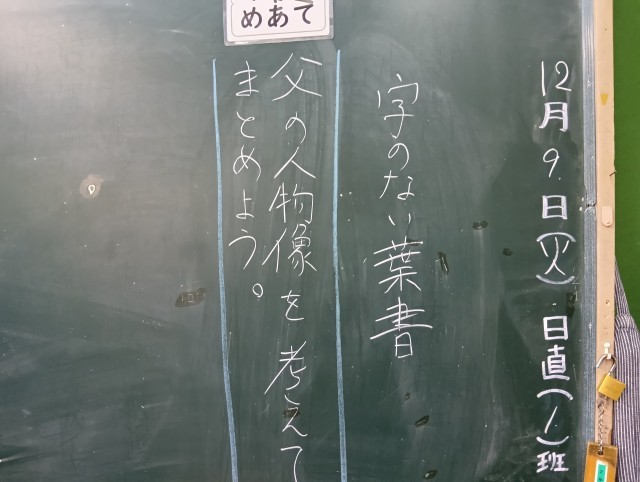 12月9日(火) 日直(1)班
字のない葉書
めあて
父の人物像を考えて
まとめよう。